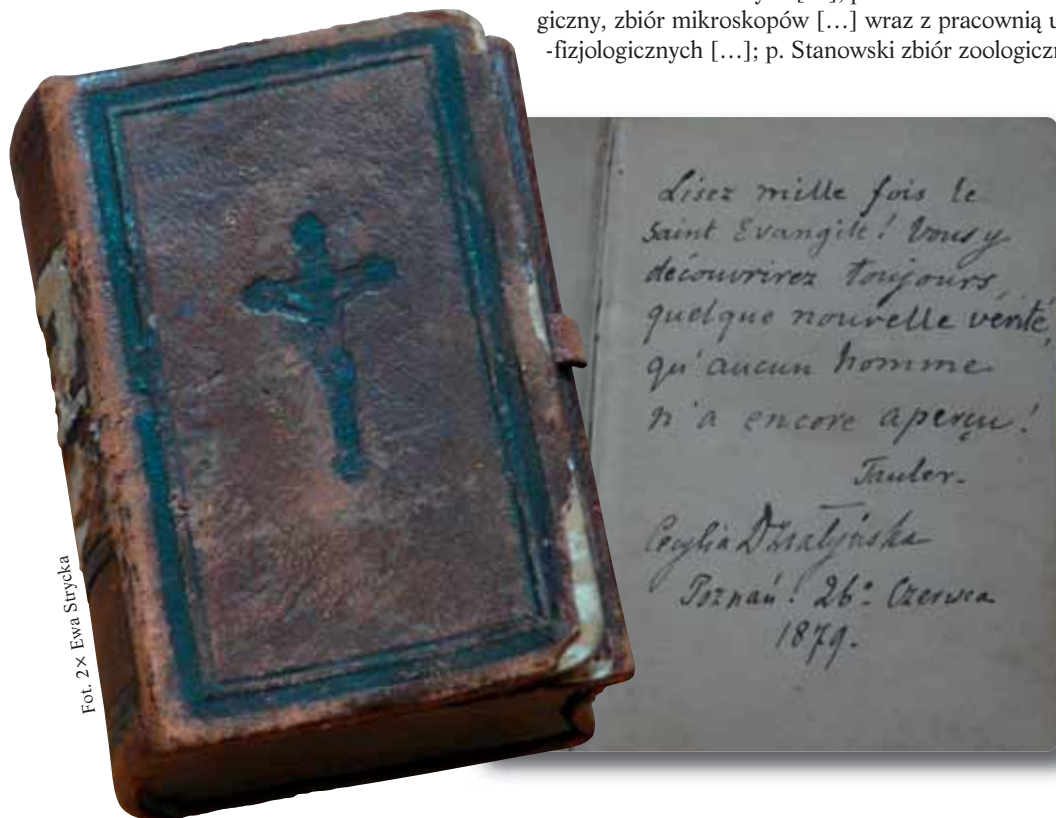 giczny, zbiór mikroskopów […] wraz z pracownią
-fizjologicznych […]; p. Stanowski zbiór
Lisez mille fois le
saint Evangile! Vous y
découvrirez toujours,
quelque nouvelle vérité,
qu'aucun homme
n'a encore aperçu!
Tauler.
Cecylia Działyńska
Poznań! 26º Czerwca
1879.
Fot. 2× Ewa Strycka